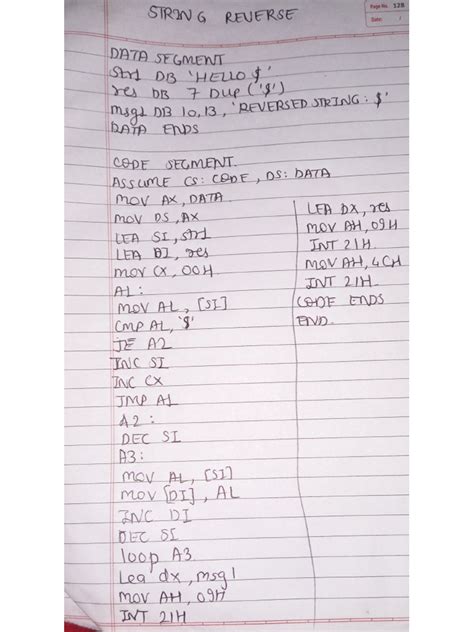 Page No. 128
Date: /
STRING REVERSE
DATA SEGMENT
Str1 DB 'HELLO $'
res DB 7 Dup ('$')
msg1 DB 10,13, 'REVERSED STRING: $'
DATA ENDS
CODE SEGMENT.
ASSUME CS: CODE, DS: DATA
MOV AX, DATA
MOV DS, AX
LEA SI, str1
LEA DI, res
MOV CX, 00H
A1:
MOV AL, [SI]
CMP AL, '$'
JE A2
INC SI
INC CX
JMP A1
A2:
DEC SI
A3:
MOV AL, [SI]
MOV [DI], AL
INC DI
DEC SI
loop A3
Lea dx, msg1
MOV AH, 09H
INT 21H
LEA DX, res
MOV AH, 09H
INT 21H
MOV AH, 4CH
INT 21H.
CODE ENDS
END.